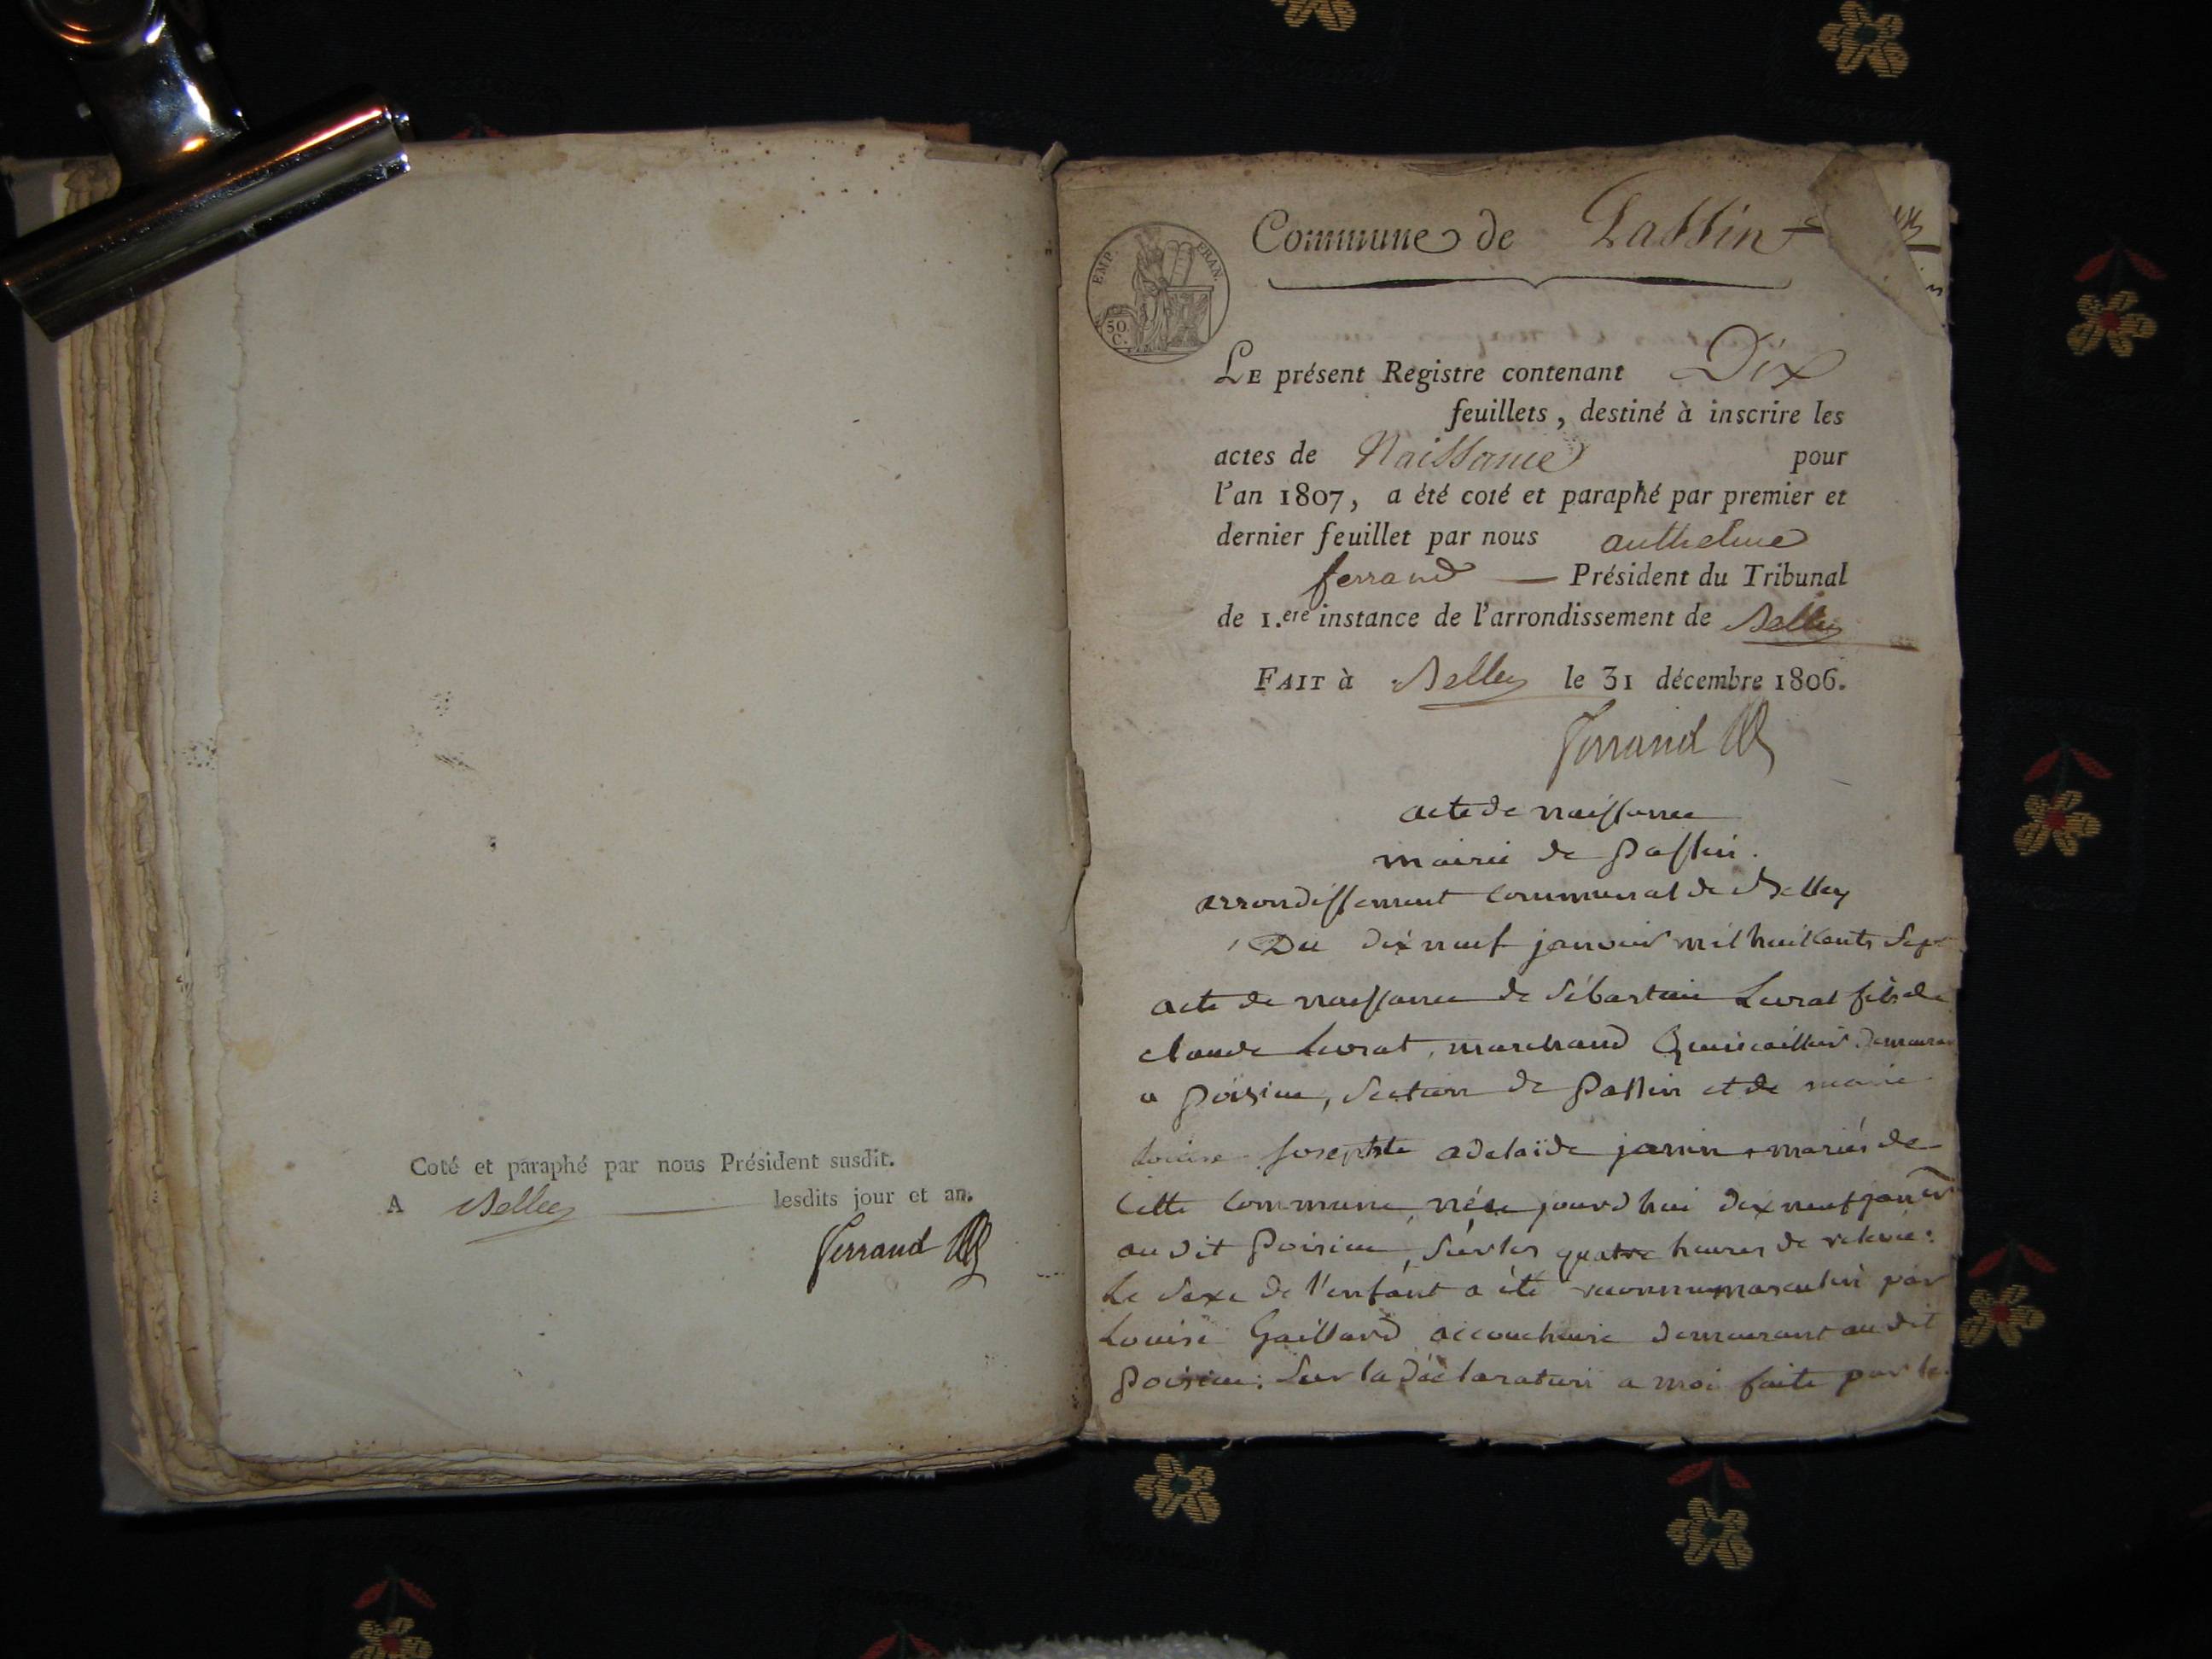 Coté et paraphé par nous Président susdit.
A Belley lesdits jour et an.
Ferrand
Commune de Passin
EMP. FRAN.
50 C.
LE présent Registre contenant Dix
feuillets, destiné à inscrire les
actes de Naissance pour
l'an 1807, a été coté et paraphé par premier et
dernier feuillet par nous anthelme
ferrand — Président du Tribunal
de 1.ere instance de l'arrondissement de Belley
FAIT à Belley le 31 décembre 1806.
Ferrand
acte de naissance
mairie de Passin.
arrondissement communal de Belley
Du dix neuf janvier mil huit cents sept
acte de naissance de Sébastien Levrat fils de
claude Levrat, marchand Quincaillier demeurant
a Poisieu, Section de Passin et de marie
Louise Josephte adelaïde janin, mariés de
cette commune, né ce jourd'hui dix neuf janvier
au dit Poisieu, sur les quatre heures de relevée:
Le sexe de l'enfant a été reconnu masculin par
Louise Gaillard accoucheuse demeurant au dit
Poisieu: Sur la déclaration a moi faite par le